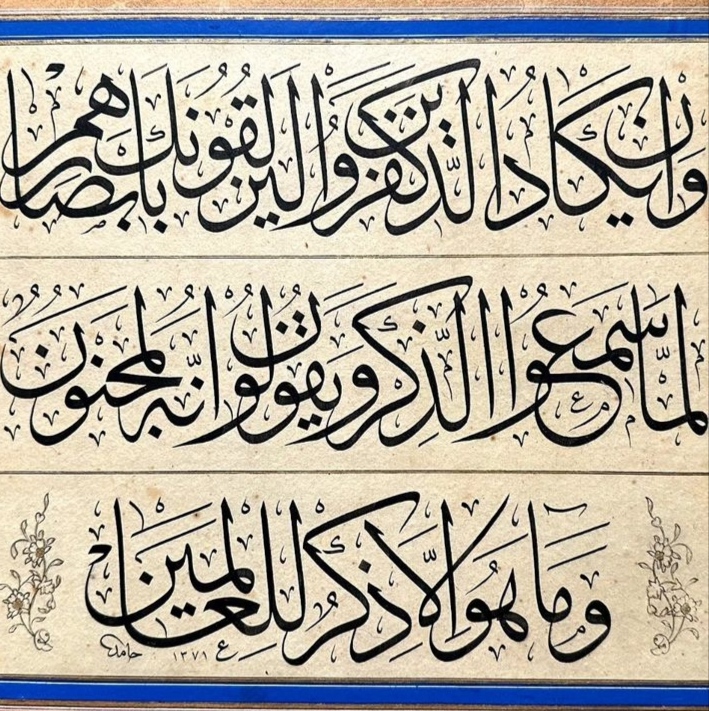 وَإِنْ يَكَادُ الَّذِينَ كَفَرُوا لَيُزْلِقُونَكَ بِأَبْصَارِهِمْ
لَمَّا سَمِعُوا الذِّكْرَ وَيَقُولُونَ إِنَّهُ لَمَجْنُونٌ
وَمَا هُوَ إِلَّا ذِكْرٌ لِلْعَالَمِينَ
حامد ١٣٧١